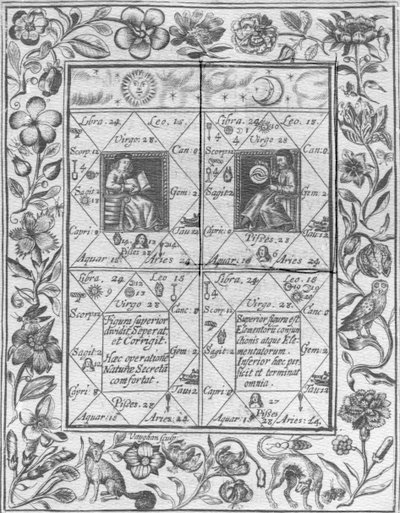 Libra. 24 Leo. 18
Virgo. 28.
Scorp: 12 Can: 0
Sagit: 2 Gem: 2
Capri: 2 Tau: 12
Pisces 28
Aquar. 18 Aries 24
Libra. 24 Leo. 18.
Virgo 28
Scorp: 12 Can: 0
Sagit: 2 Gem: 2
Capri: 2 Tau: 12
Pisces. 28
Aquar: 16 Aries. 24
Libra, 24 Leo 18
Virgo. 28
Scorp: 12 Canc: 0
Figura superior
dividit, Seperat,
et Corrigit.
Hæc operatione
Naturæ Secreta
comfortat.
Sagit: 2 Gem: 2
Capri: 8 Tau: 12
Pisces. 28
Aquar: 18 Aries: 24
Libra. 24 Leo 18
Virgo. 28
Scorp: 12 Canc: 0
Superior figura est
Elementorū coniun
ctionis atque Ele-
mentatorum.
Inferior hæc per
ficit et terminat
omnia.
Sagit: 2 Gem: 2
Capri: 0 Tau: 12
Pisces. 28
Aquar: 18 Aries: 24.
Vaughan sculp: